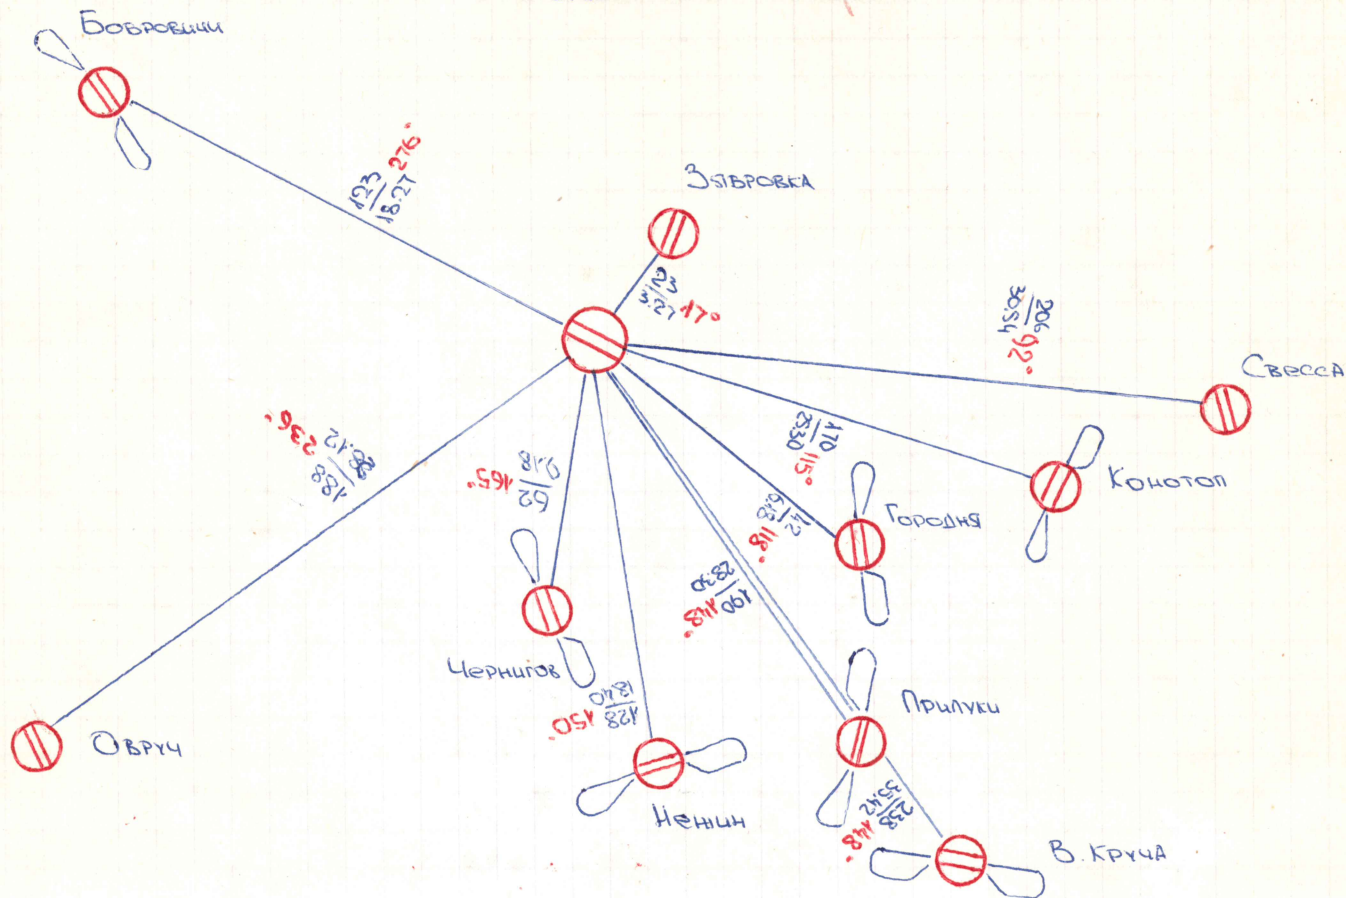 Бобровичи
123
18.27 276°
Зябровка
23
3.27 17°
206
30.54 92°
Свесса
170
25.30 115°
Конотоп
42
6.18 118°
Городня
188
28.12 236°
62
9.18 165°
190
28.30 148°
Чернигов
128
150°
Прилуки
Овруч
Нежин
238
35.42 148°
В. Круча